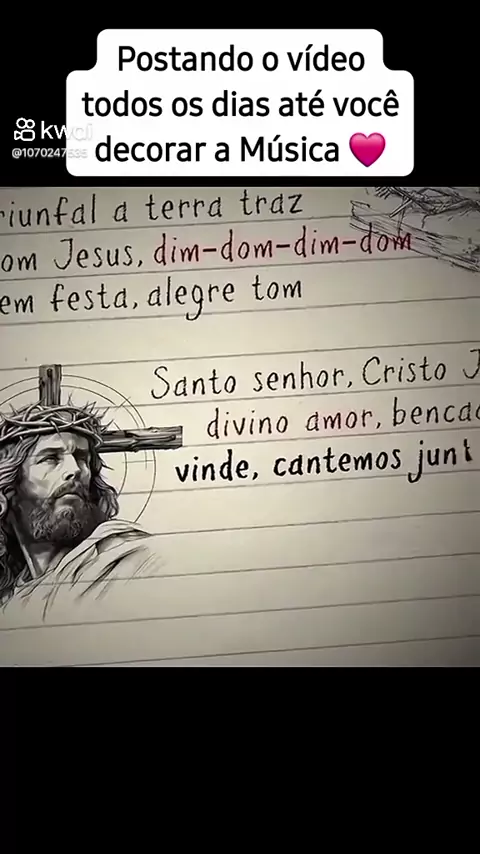 Postando o vídeo
todos os dias até você
decorar a Música 🩷
kwai
@1070247535
riunfal a terra traz
om Jesus, dim-dom-dim-dom
em festa, alegre tom
Santo senhor, Cristo J
divino amor, benca
vinde, cantemos junt